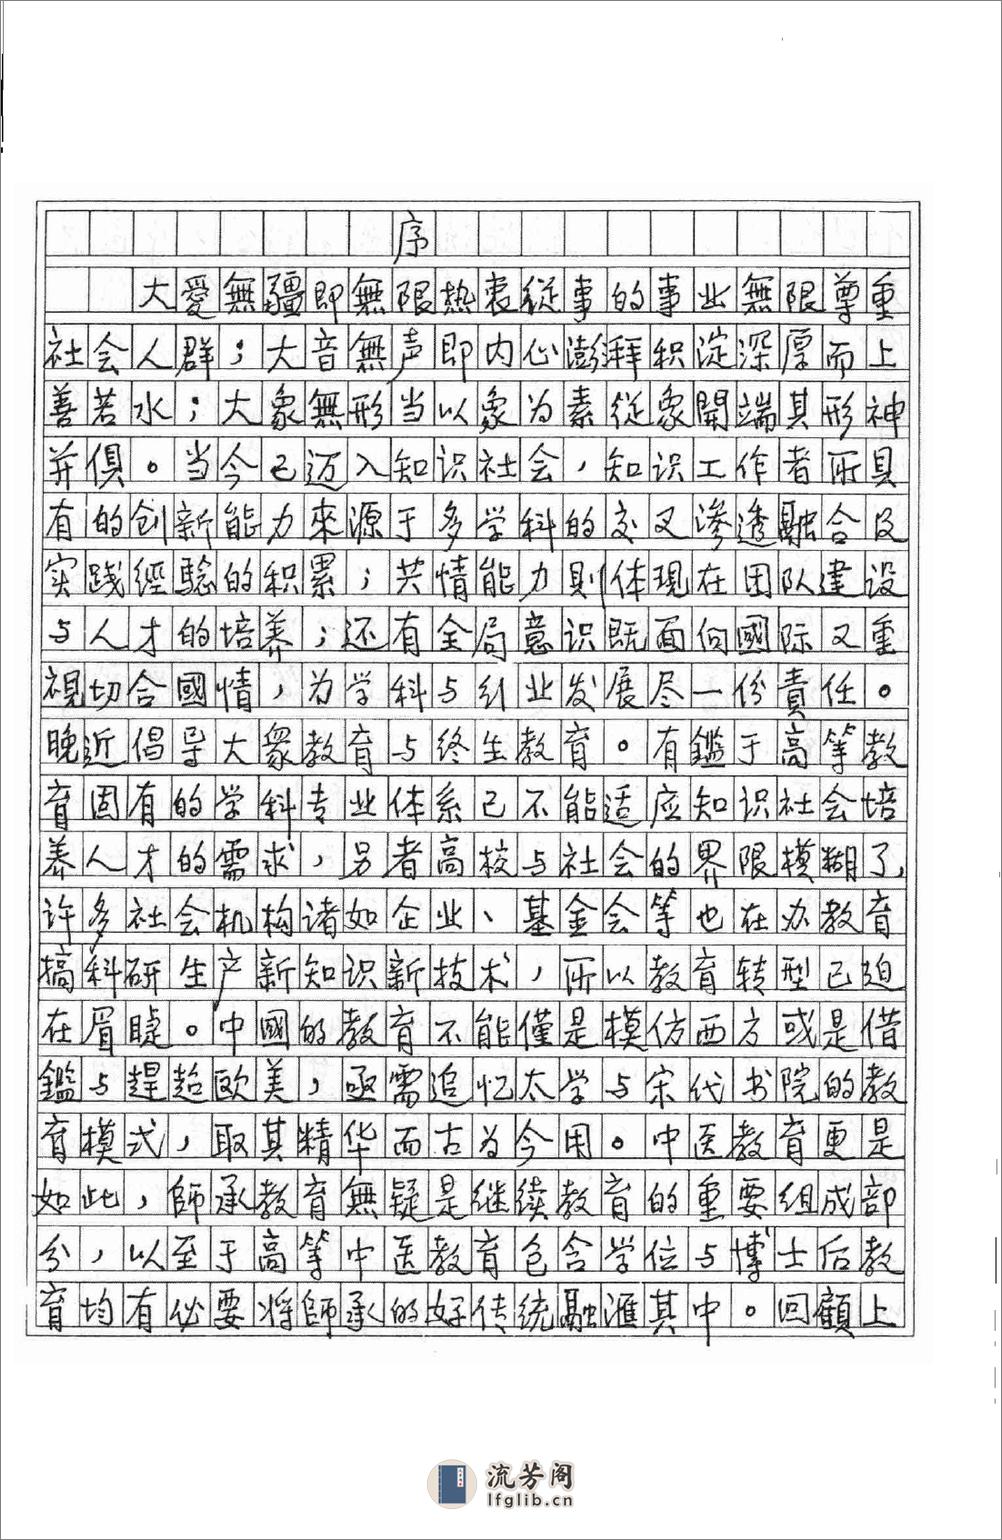 序
大愛無疆即無限热衷從事的事业無限尊重
社会人群；大音無声即内心澎湃积淀深厚而上
善若水；大象無形当以象为素從象開端其形神
并俱。当今已迈入知识社会，知识工作者所具
有的创新能力來源于多学科的交叉渗透融合及
实践經驗的积累；共情能力则体现在团队建设
与人才的培养；还有全局意识既面向國际又重
視切合國情，为学科与行业发展尽一份責任。
晚近倡导大衆教育与终生教育。有鑑于高等教
育固有的学科专业体系已不能适应知识社会培
养人才的需求，另者高校与社会的界限模糊了，
许多社会机构诸如企业、基金会等也在办教育
搞科研生产新知识新技术，所以教育转型已迫
在眉睫。中國的教育不能僅是模仿西方或是借
鑑与趕超欧美，亟需追忆太学与宋代书院的教
育模式，取其精华而古为今用。中医教育更是
如此，師承教育無疑是继续教育的重要组成部
分，以至于高等中医教育包含学位与博士后教
育均有必要将師承的好传统融滙其中。回顧上
流芳阁
lfglib.cn